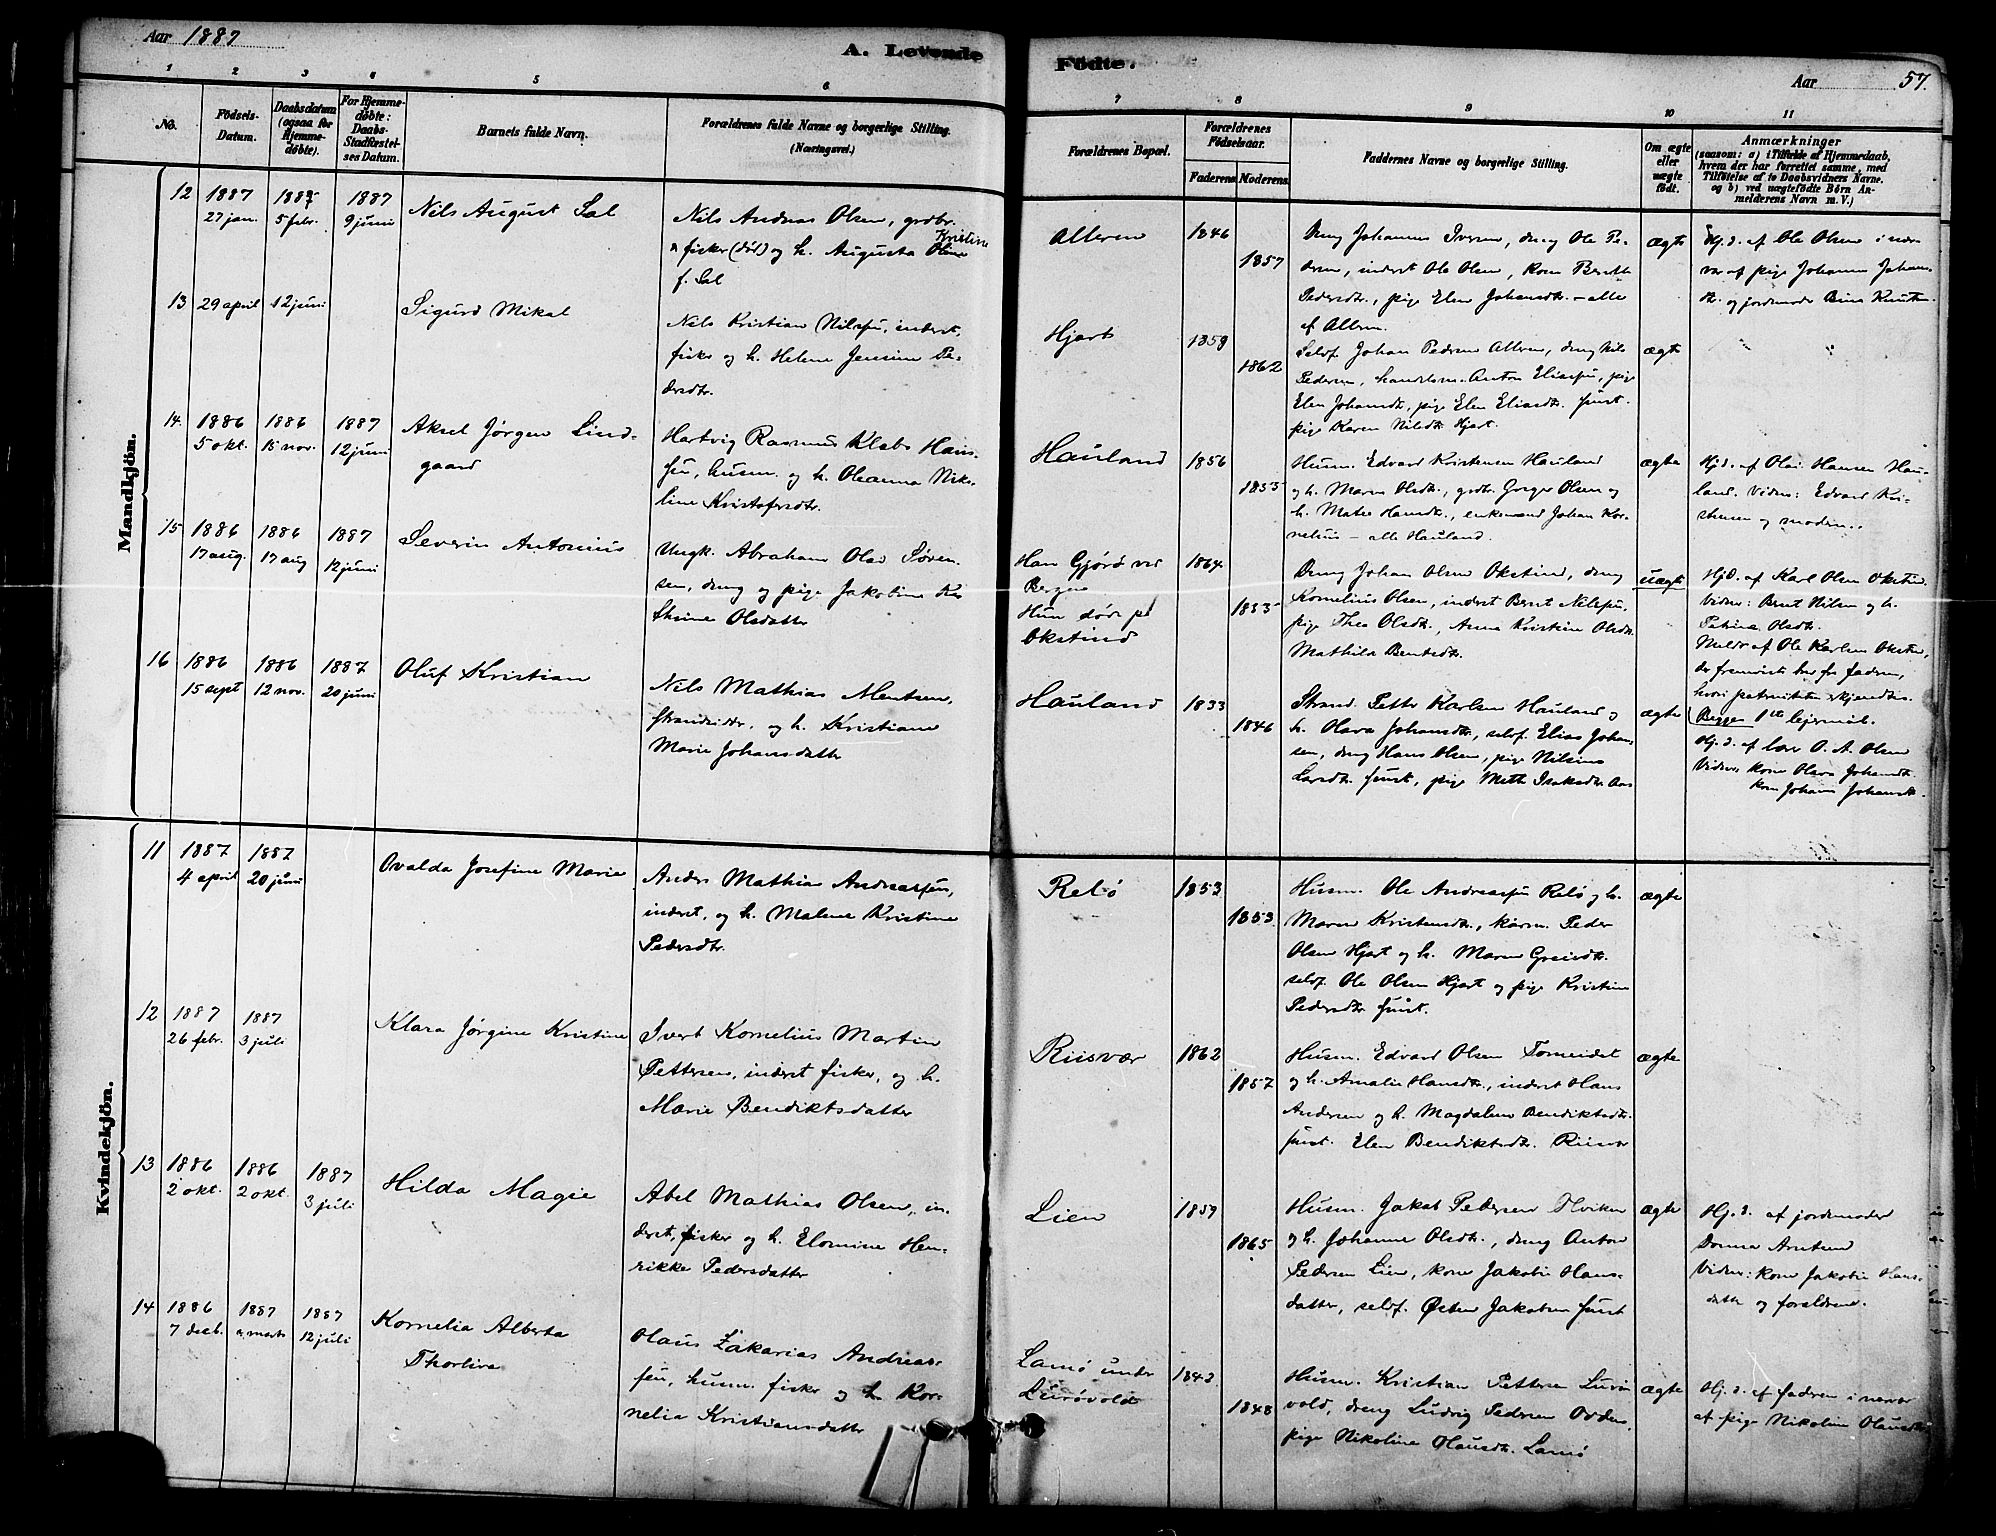 Aar 1887
A. Levende
Födte.
Aar
57.
1
2
3
4
5
6
7
8
9
10
11
No.
Födsels-
Datum.
Daabsdatum
(ogsaa for
Hjemme-
døbte).
For Hjemme-
døbte:
Daabs-
Stadfæstel-
ses Datum.
Barnets fulde Navn.
Forældrenes fulde Navne og borgerlige Stilling.
(Næringsvei.)
Forældrenes Bopæl.
Forældrenes
Födselsaar.
Faderens.
Moderens.
Faddernes Navne og borgerlige Stilling.
Om ægte
eller
uægte
födt.
Anmærkninger
(saasom: a) i Tilfælde af Hjemmedaab,
hvem der har forrettet samme, med
Tilföielse af to Daabsvidners Navne.
og b) ved uægtefödte Börn An-
melderens Navn m. V.)
Mandkjön.
12
1887
27 jan.
1887
5 febr.
1887
9 juni
Nils August Sal
Nils Andreas Olsen, grdbr.
Kristine
fisker (død) og h. Augusta Olsen
f. Sal
Alteren
1846
1857
Dreng Johannes Iversen, dreng Ole Pe-
dersen, inderst Ole Olsen, kone Berith
Pedersdtr., pige Elen Johansdtr. – alle
af Alteren.
ægte
Hj. d. af Ole Olsen i nær-
vær af pige Johanna Johans-
dtr. og jordemoder
13
29 april
12 juni
Sigurd Mikal
Nils Kristian Nilssen, inderst,
fisker og h. Helene Jensine Pe-
dersdtr.
Hjart
1859
1862
Selvf. Johan Pedersen Alteren, dreng Nils
Pedersen, handelsm. Anton Eliassen, pige
Elen Johansdtr., pige Elen Eliasdtr. smst.
pige Karen Nilsdtr. Hjart.
ægte
14.
1886
5 okt.
1886
15 nov.
1887
12 juni
Aksel Jørgen Lind-
gaard
Hartvig Rasmus Klabo Han-
sen, husm. og h. Oleanna Nik-
line Kristofersdtr.
Hauland
1856
1855
Husm. Edvard Kristensen Hauland
og h. Maren Olsdtr., grdbr. Jørger Olsen og
h. Matea Hansdtr., enkemand Johan Kor-
nelius – alle Hauland.
ægte
Hj. d. af Olai Hansen Hau-
land. Vidner: Edvard Kri-
stensen og moderen.
15
1886
17 aug.
1886
17 aug
1887
12 juni
Severin Antonius
Ungk. Abraham Olai Søren-
sen, dreng og pige Jakobine Kri
stine Olsdatter
Han Gjørd ved
Bergen
Hun døde på
Økstind
1864.
1855
Dreng Johan Olsen Økstind, dreng
Kornelius Olsen, inderst Bernt Nilssen,
pige Thea Olsdtr., Anna Kristine Olsdtr.
Mathilda Berntsdtr.
uægte
Hj.d. af Karl Olsen Økstin
Vidner: Bernt Nilsen og h.
Petrine Olsdtr.
Meldt af Ole Karlsen Økstin,
der fremviste brev fra faderen,
hvori paterniteten erkjendtes.
Begges 1ste lejermål.
16
1886
15 sept
1886
12 nov.
1887
20 juni
Oluf Kristian
Nils Mathias Mentsen,
strandsidder, og h. Kristiane
Marie Johansdatter
Hauland
1833
1846
Strands. Petter Karlsen Hauland og
h. Olava Johansdtr., selvf. Elias Johan-
sen, dreng Hans Olsen, pige Nilsine
Larsdtr. smst, pige Meth Isaksdtr. Aas
ægte
Hj. d. af lærer O. A. Olsen
Vidner: kone Olava Johansdtr.
kone Johanna Johansdtr.
Kvindekjön.
11
1887
4 april
1887
20 juni
Ovalda Josefine Marie
Anders Mathias Andreassen,
inderst, og h. Malene Kristine
Pedersdtr.
Relsø
1853
1853
Husm. Ole Andreassen Relsø og h.
Maren Kristensdtr., kårm. Peder
Olsen Hjart og h. Maren Greisdtr.
selvf. Ole Olsen Hjart og pige Kristine
Pedersdtr smst.
ægte
12
1887
26 febr.
1887
3 juli
Klara Jørgine Kristine
Ivert Kornelius Martin
Pettersen, inderst fisker, og h.
Marie Bendiktsdatter
Riisvær
1862
1857
Husm. Edvard Olsen Torneidet
og h. Amalie Hansdtr., inderst Hans
Andersen og h. Magdalena Bendiktsdtr.
smst. Elen Bendiktsdtr. Riisvær
ægte
13
1886
2 okt.
1886
2 okt.
1887
3 juli
Hilda Magie
Abel Mathias Olsen, in-
derst, fisker og h. Elomine Hen-
rikke Pedersdatter
Lien
1859
1865
Husm. Jakob Pedersen Hviken
og h. Johanna Olsdtr., dreng Anton
Pedersen Lien, kone Jakobie Hans-
datter, selvf. Østen Jakobsen smst
ægte
Hj. d. af jordemoder
Dorma Arntsen
Vidner: kone Jakobie Hans-
datter og forældrene.
14
1886
7 decb.
1887
marts
1887
12 juli
Kornelia Alberta
Thorlina
Olaus Zakarias Andreas-
sen, husm. fisker og h. Kor-
nelia Kristiansdatter
Lamø under
Lurøvold
1843
1848
Husm. Kristian Pettersen Lurø
vold, dreng Ludvig Pedersen Odden
pige Nikoline Olausdtr. Lamø
ægte
Hj. d. af faderen i nærvær
af pige Nikoline Olausdtr